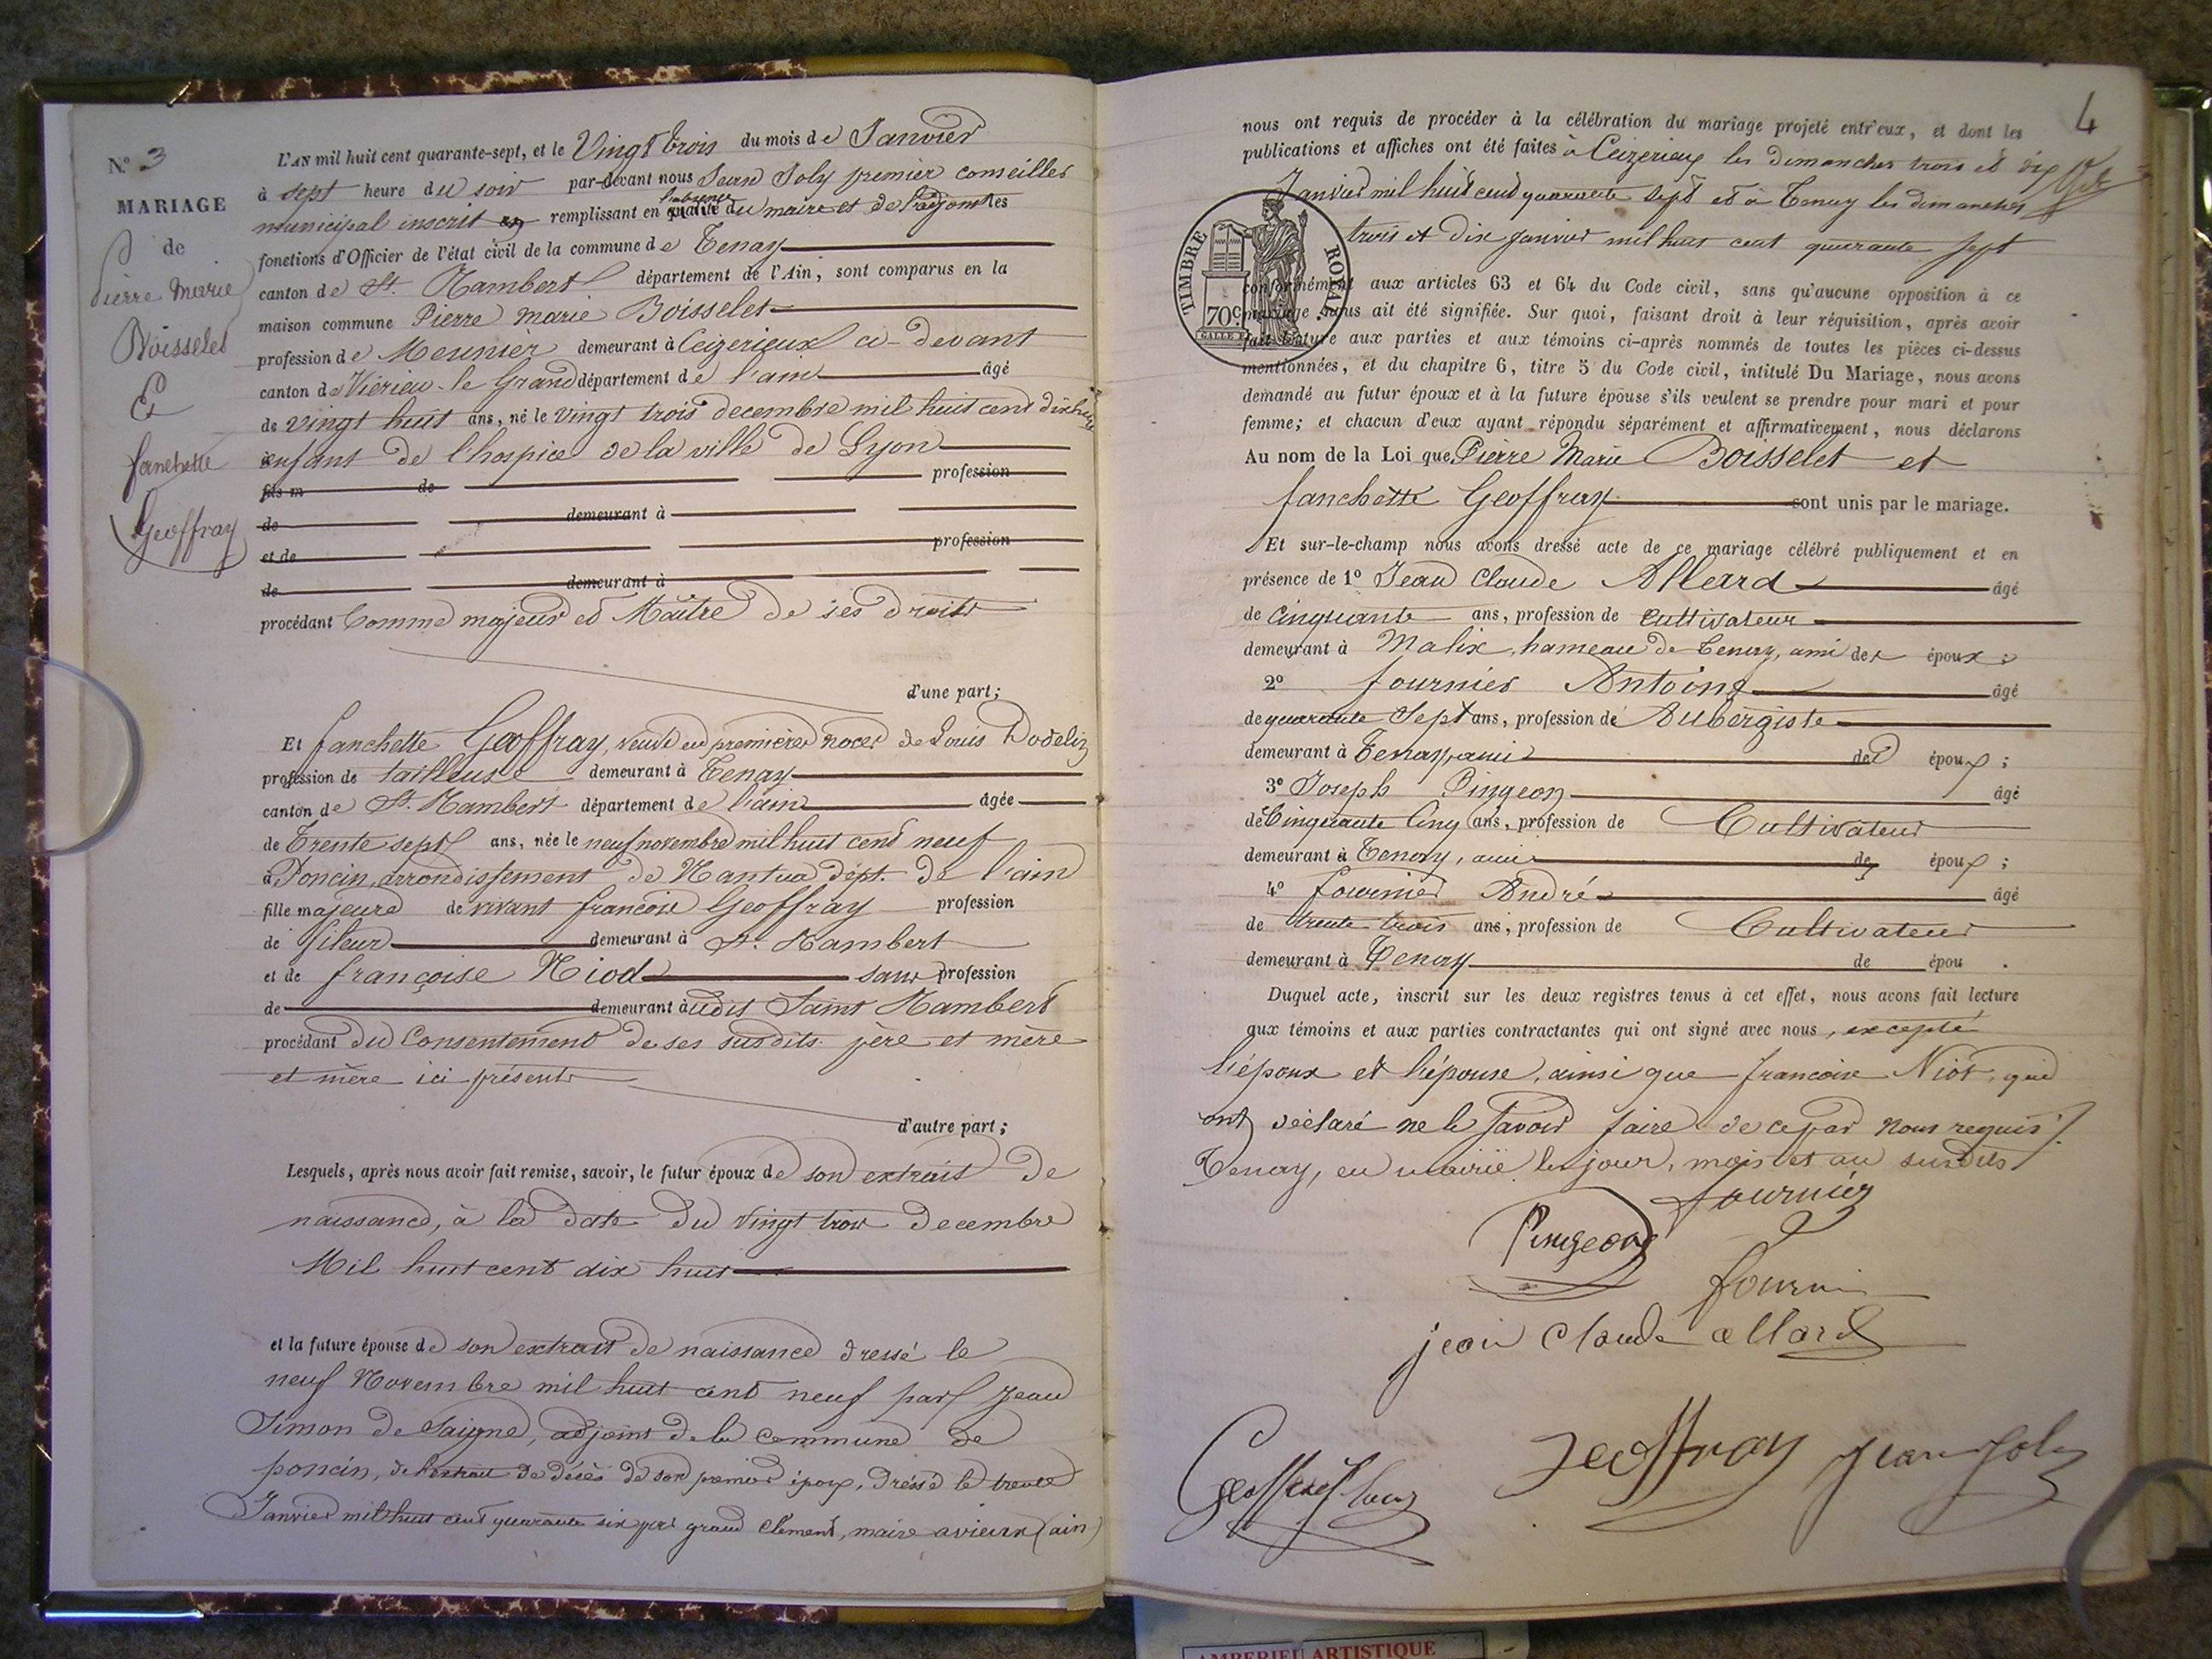 N.° 3
MARIAGE
de
Pierre Marie
Boisselet
Et
fanchette
Geoffray
L'AN mil huit cent quarante-sept, et le Vingt trois du mois de Janvier
à sept heure du soir par-devant nous Jean Joly premier conseiller
municipal inscrit remplissant en l'absence du maire et de l'adjoint les
fonctions d'Officier de l'état civil de la commune de Tenay
canton de St. Rambert département de l'Ain, sont comparus en la
maison commune Pierre Marie Boisselet
profession de Meunier demeurant à Ceizerieux ci-devant
canton de Virieu-le Grand département de l'ain âgé
de vingt huit ans, né le vingt trois decembre mil huit cent dix huit
enfant de l'hospice de la ville de Lyon
fils m de profession
de demeurant à
et de profession
de demeurant à
procédant Comme majeur et Maître de ses droits
d'une part;
Et fanchette Geoffray, veuve en premières noces de Louis Dodeliz
profession de tailleuse demeurant à Tenay
canton de St. Rambert département de l'ain âgée
de Trente sept ans, née le neuf novembre mil huit cent neuf
à Poncin, arrondissement de Nantua dépt. de l'ain
fille majeure de vivant françois Geoffray profession
de fileur demeurant à St. Rambert
et de françoise Niod sans profession
de demeurant à udit Saint Rambert
procédant du Consentement de ses susdits père et mère
et mère ici présents
d'autre part;
Lesquels, après nous avoir fait remise, savoir, le futur époux de son extrait de
naissance, à la date du vingt trois decembre
Mil huit cent dix huit
et la future épouse de son extrait de naissance dressé le
neuf Novembre mil huit cent neuf par Jean
Simon de Saigne, adjoint de la commune de
poncin, de l'extrait de décès de son premier époux, dressé le trente
Janvier mil huit cent quarante six par grand Clement, maire a vieux (ain)
4
nous ont requis de procéder à la célébration du mariage projeté entr'eux, et dont les
publications et affiches ont été faites à Ceizerieux les dimanches trois et dix
Janvier mil huit cent quarante sept et à Tenay les dimanches
trois et dix janvier mil huit cent quarante sept
TIMBRE ROYAL
70c
conformément aux articles 63 et 64 du Code civil, sans qu'aucune opposition à ce
mariage nous ait été signifiée. Sur quoi, faisant droit à leur réquisition, après avoir
fait lecture aux parties et aux témoins ci-après nommés de toutes les pièces ci-dessus
mentionnées, et du chapitre 6, titre 5 du Code civil, intitulé Du Mariage, nous avons
demandé au futur époux et à la future épouse s'ils veulent se prendre pour mari et pour
femme; et chacun d'eux ayant répondu séparément et affirmativement, nous déclarons
Au nom de la Loi que Pierre Marie Boisselet et
fanchette Geoffray sont unis par le mariage.
Et sur-le-champ nous avons dressé acte de ce mariage célébré publiquement et en
présence de 1° Jean Claude Allard âgé
de Cinquante ans, profession de Cultivateur
demeurant à Malix, hameau de Tenay, ami des époux;
2° fournier Antoine âgé
de quarante Sept ans, profession de Aubergiste
demeurant à Tenay, ami des époux;
3° Joseph Pingeon âgé
de Cinquante Cinq ans, profession de Cultivateur
demeurant à Tenay, ami de époux;
4° fournier André âgé
de trente trois ans, profession de Cultivateur
demeurant à Tenay de épou .
Duquel acte, inscrit sur les deux registres tenus à cet effet, nous avons fait lecture
aux témoins et aux parties contractantes qui ont signé avec nous, excepté
l'époux et l'épouse, ainsi que francoise Niod, qui
ont déclaré ne le savoir faire de ce par nous requis
Tenay, en mairie les jour, mois et an susdits
fournier
Pingeon
fourni
jean Claude allard
Geoffray
Jean Joly
AMBERIEU ARTISTIQUE